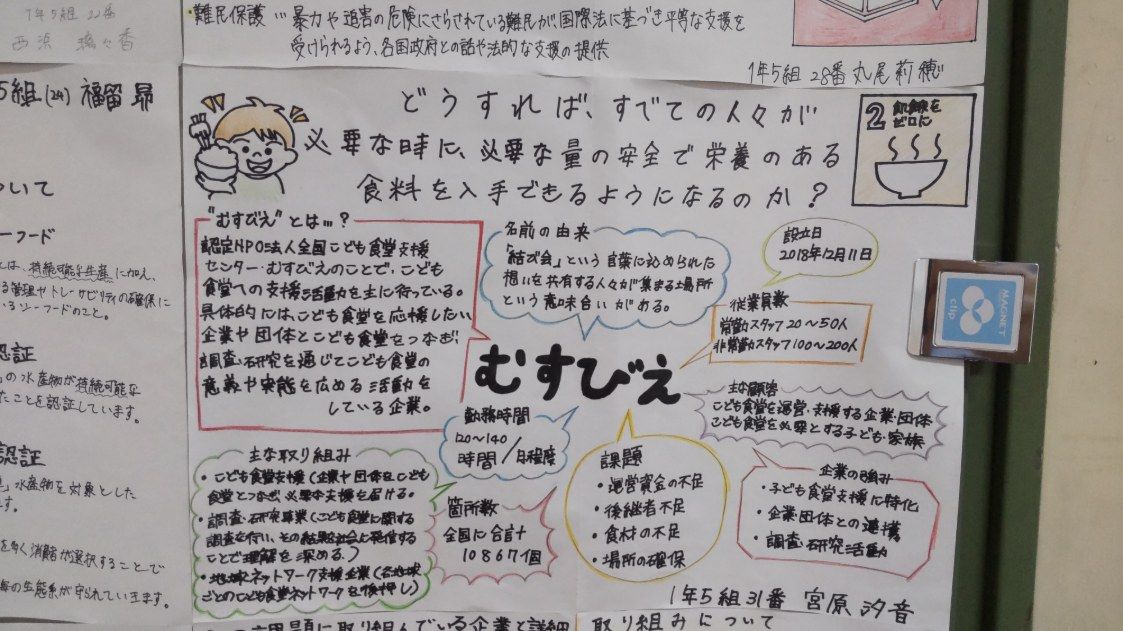 1年5組 22番
・難民保護 … 暴力や迫害の危険にさらされている難民が、国際法に基づき平等な支援を
受けられるよう、各国政府との話や法的な支援の提供
1年5組 28番 丸尾莉穂
5組(24) 福留 昴
ついて
ーフード
とは、持続可能な生産に加え、
る管理やトレーサビリティの確保に
いるシーフードのこと。
認証
の水産物が持続可能な
たことを認証しています。
認証
水産物を対象とした
ます。
を多く消費者が選択することで
海の生態系が守られていきます。
どうすれば、すべての人々が
必要な時に、必要な量の安全で栄養のある
食料を入手できるようになるのか?
2 飢餓を
ゼロに
"むすびえ"とは…?
認定NPO法人全国こども食堂支援
センター・むすびえのことで、こども
食堂への支援活動を主に行っている。
具体的にはこども食堂を応援したい
企業や団体とこども食堂をつなぎ、
調査・研究を通じてこども食堂の
意義や実態を広める活動を
している企業。
名前の由来
「結び会」という言葉に込められた
想いを共有する人々が集まる場所
という意味合いがある。
設立日
2018年12月11日
従業員数
常勤スタッフ20~50人
非常勤スタッフ100~200人
MAGNET
clip
むすびえ
主な顧客
こども食堂を運営・支援する企業・団体
こども食堂を必要とする子ども・家族
勤務時間
120~140
時間/月程度
主な取り組み
・こども食堂支援(企業や団体をこども
食堂とつなぎ、必要な支援を届ける。
・調査・研究事業(こども食堂に関する
調査を行い、その結果を社会に発信する
ことで理解を深める。)
・地域ネットワーク支援企業(各地域
ごとのこども食堂ネットワークを後押し)
箇所数
全国に合計
10867個
課題
・運営資金の不足
・後継者不足
・食材の不足
・場所の確保
企業の強み
・子ども食堂支援に特化
・企業団体との連携
・調査・研究活動
1年5組31番 宮原汐音
問題に取り組んでいる企業と詳細
取り組みについて